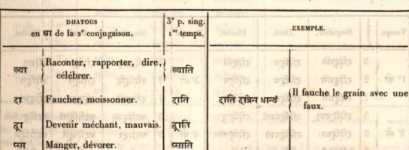 DHATOUS
en धा de la 2e conjugaison.
3e p. sing.
1er temps.
EXEMPLE.
ख्या
Raconter, rapporter, dire,
célébrer.
ख्याति
दा
Faucher, moissonner.
दाति
दाति दात्रेन धान्यं
Il fauche le grain avec une
faux.
Devenir méchant, mauvais.
प्सा
Manger, dévorer.
प्साति